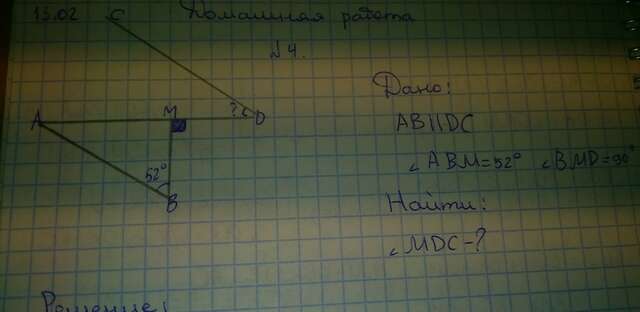 13.02 Домашняя работа
№4.
C
Дано:
A M ? D
AB||DC
52°
∠ABM=52° ∠BMD=90°
B
Найти:
∠MDC-?
Решение: